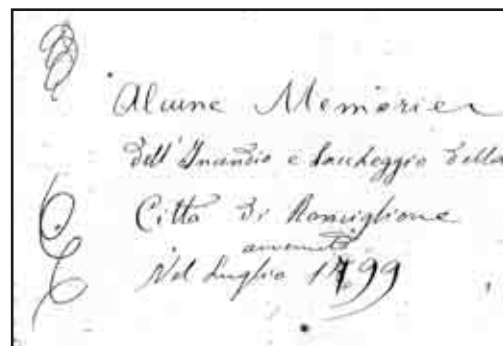 Alcune Memorie
dell'Incendio e Saccheggio della
Città di Ronciglione
avvenuto
Nel Luglio 1799